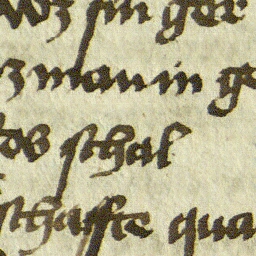 wz sin ger
z man in ge
os schal
schaffte qua